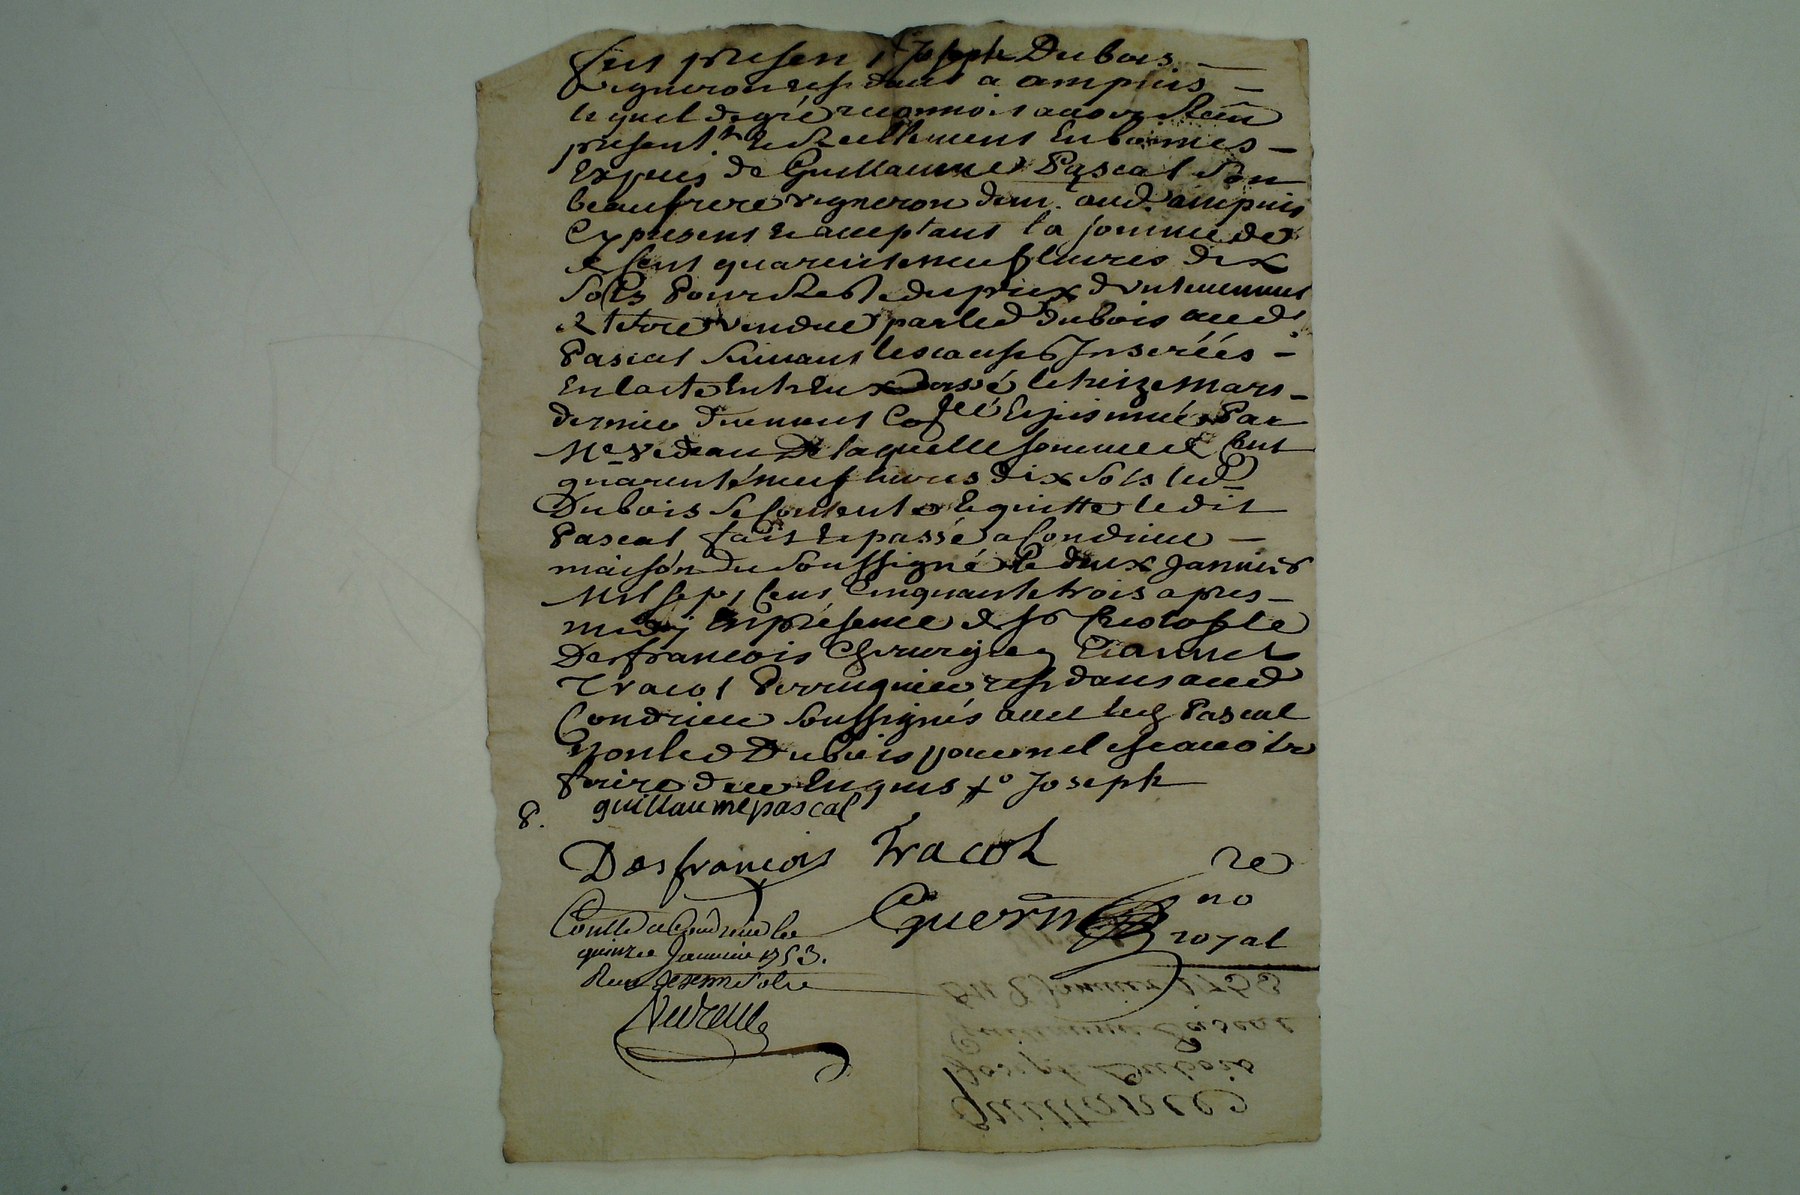 fut present Joseph Dubois
vigneron residant a ampuis
lequel de gré reconnois avoir
presentt. & Réellement
de Guillaume Pascal son
beaufrere vigneron dem. aud. ampuis
Cy present & acceptant la somme de
cent quarente neuf livres dix
sols Pour Reste du prix d'un tenement
& terre vendue par led Dubois aud.
Pascal suivant les causes Inserées
En l'acte Entr'eux passé le treize mars
dernier duement &
Me. De laquelle somme de Cent
quarente neuf livres dix sols led
Dubois se contente & quitte ledit
Pascal fait & passé a Condrieu
maison du soussigné le deux Janvier
Mil sept Cens Cinquante trois apres
midy En présence de sr
Desfrancois Chirurgien &
Tracol Perruquier residans aud
Condrieu soussignés avec led Pascal
non led Dubois pour ne le scavoir
faire de ce Enquis Xo Joseph
P. guillaume pascal
Desfrançois Tracol
Guerin re
no
royal
Conllé a Condrieu le
quinze Janvier 1753.
Reçu
Du 2 Janvier 1753
Guillaume Pascal
Joseph Dubois
Quittance